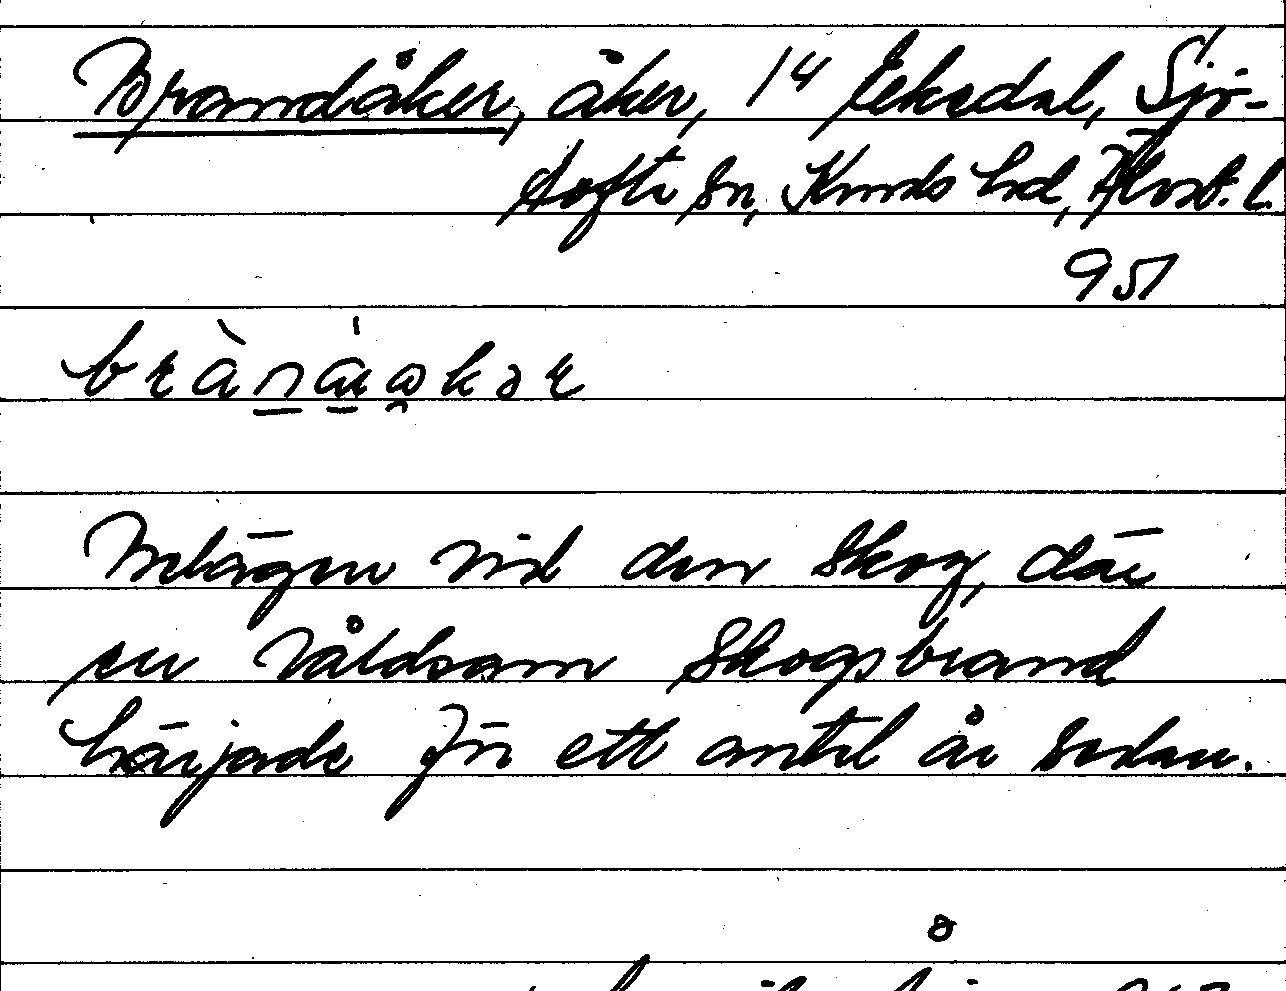 Brandåker, åker, 14 Ekedal, Sjö-
tofta sn, Kinds hd, Älvsb. l.
951
Belägen vid den skog, där
en våldsam skogsbrand
härjade för ett antal år sedan.